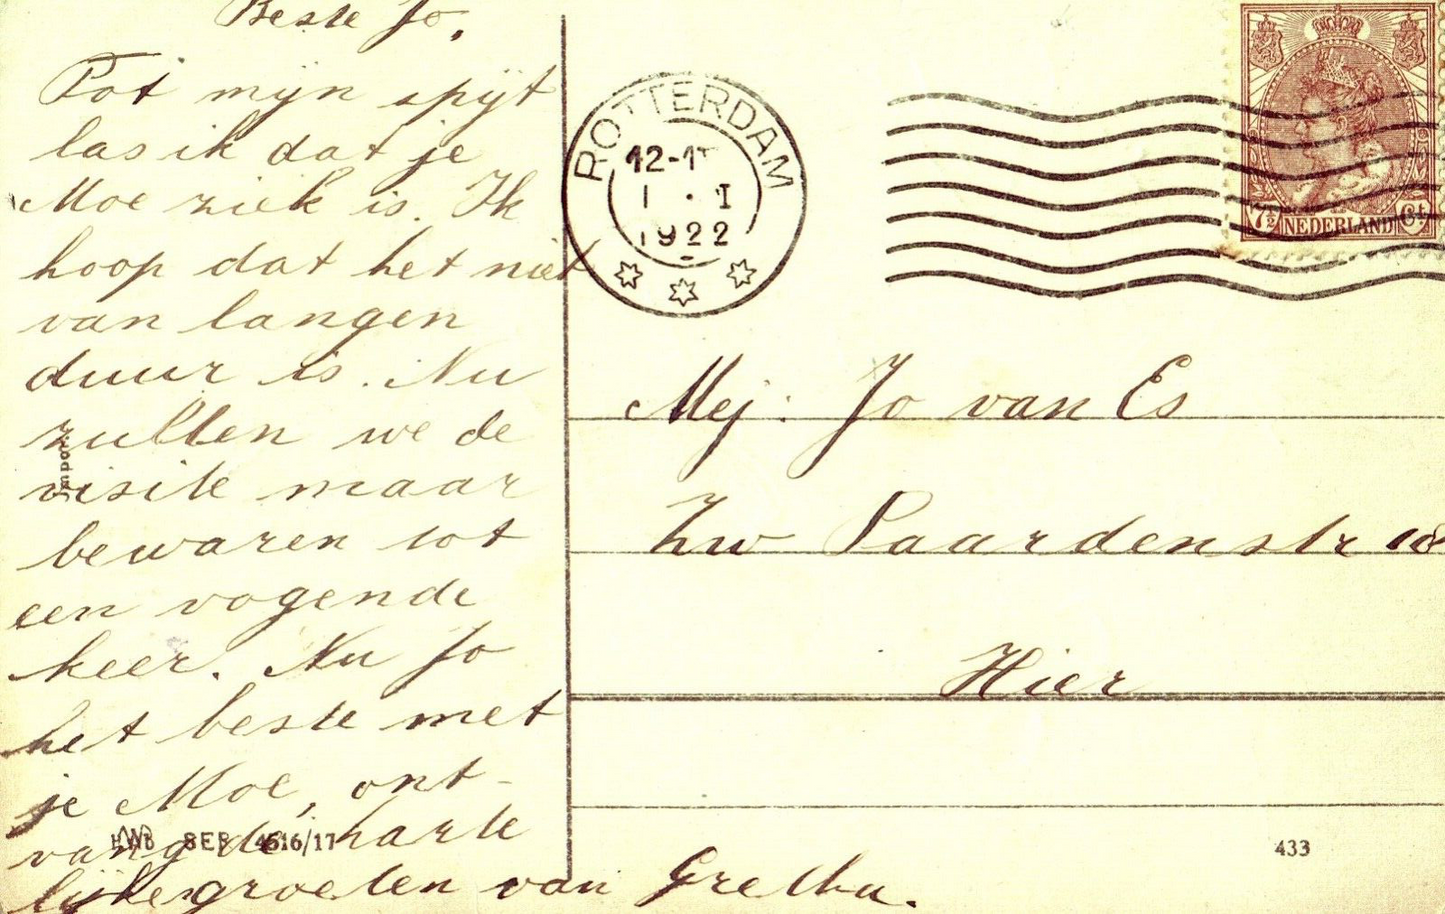 Beste Jo,
Tot mijn spijt
las ik dat je
Moe ziek is. Ik
hoop dat het niet
van langen
duur is. Nu
zullen we de
visite maar
bewaren tot
een vogende
keer. Nu Jo
het beste met
je Moe, ont-
vang de harte
lijke groeten van Gretha.
Import.
HWB SER 4516/17
ROTTERDAM
12-1
1 · I
1922
7½ NEDERLAND Ct
Mej: Jo van Es
Zw Paardenstr 18
Hier
433